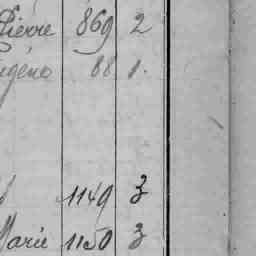 Pierre 869 2
Eugène 88 1.
1149 3
Marie 1150 3